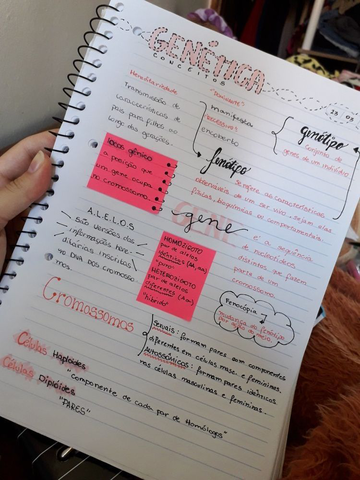 GENÉTICA
CONCEITOS
Hereditariedade
Transmissão de
características de
pais para filhos ao
longo das gerações.
"Dominante"
manifesta
"Recessivo"
encoberto
genótipo
Conjunto de
genes de um indivíduo
fenótipo
Sempre as características
observáveis de um ser vivo, sejam elas
físicas, bioquímicas ou comportamentais
LOCUS GÊNICO
a posição que
um gene ocupa
no cromossomo.
gene
GENE
é a sequência
de nucleotídeos
distintos que fazem
parte de um
cromossomo.
A.L.E.L.O.S
são versões das
informações here-
ditárias inscritas
no DNA dos cromosso-
mos.
HOMOZIGOTO
par de alelos
idênticos (AA, aa)
"puro"
HETEROZIGOTO
par de alelos
diferentes (Aa)
"híbrido"
Fenocópia
mudança do fenótipo
Cromossomos
Sexuais: formam pares com componentes
diferentes em células masc. e femininas.
Autossômicos: formam pares idênticos
nas células masculinas e femininas.
Células Haplóides
"Componente de cada par de Homólogos"
Células Diplóides
"PARES"